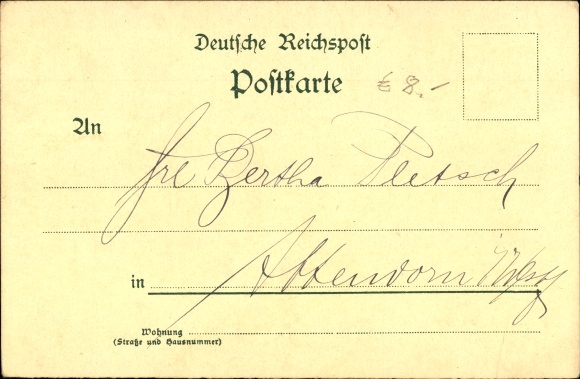 Deutsche Reichspost
Postkarte
€ 8.-
An
Frl Bertha Pletsch
in Attendorn
Wohnung
(Straße und Hausnummer)